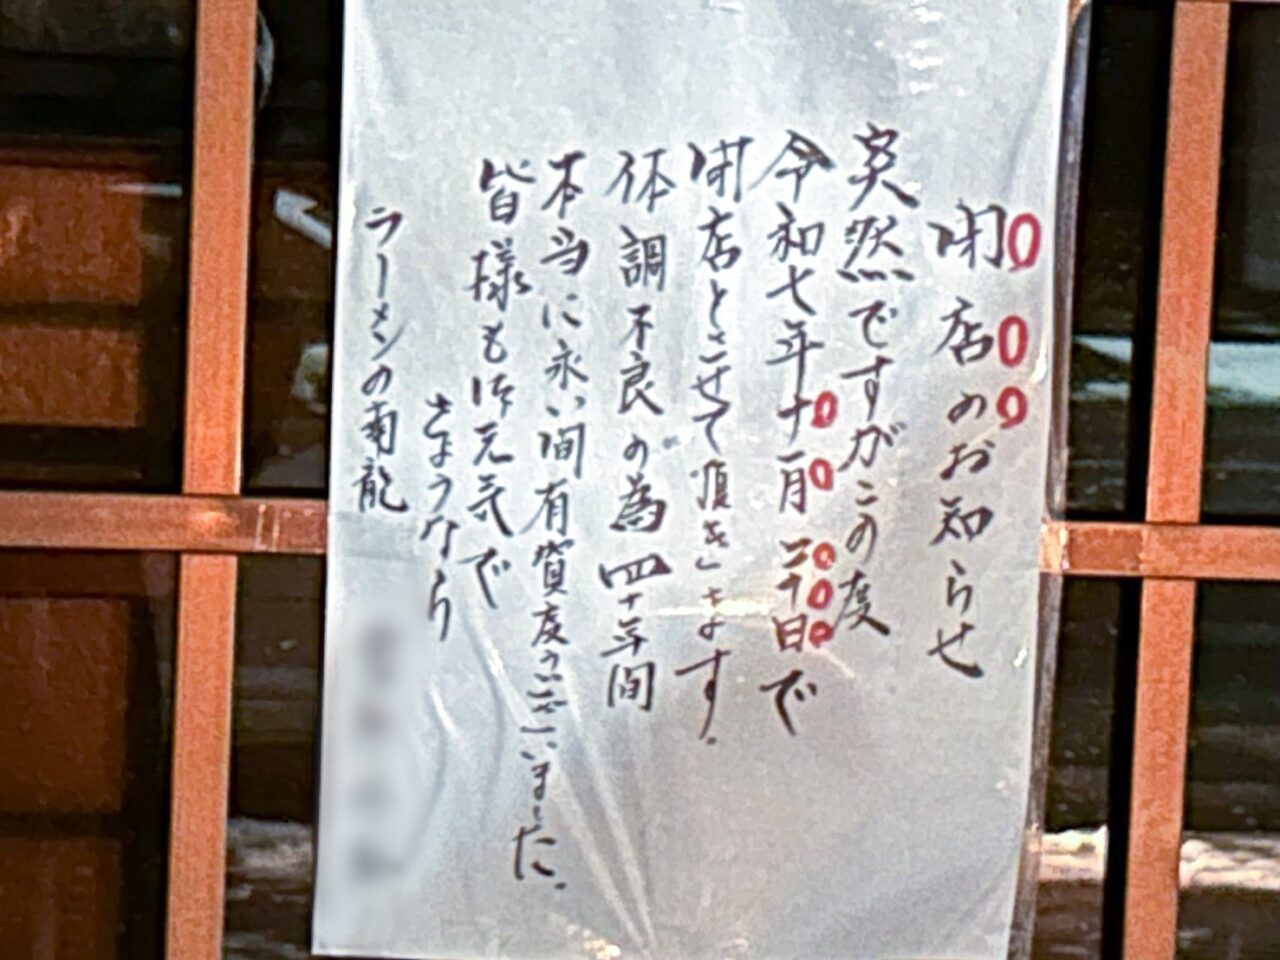 閉店のお知らせ
突然ですがこの度
令和七年十一月二十日で
閉店とさせて頂きます.
体調不良の為四十年間
本当に永い間有賀度うございました.
皆様も御元気で
さようなら
ラーメンの南龍